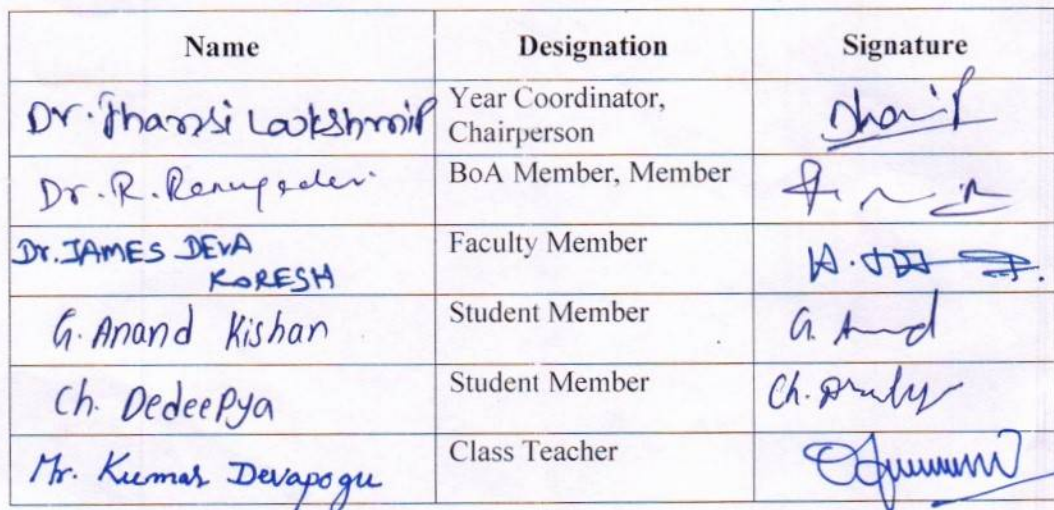 Name Designation Signature
Dr. Jhansi Lakshmi P Year Coordinator,
Chairperson
Dr. R. Renugadevi BoA Member, Member
Dr. JAMES DEVA Faculty Member
KORESH
G. Anand Kishan Student Member G. Anand
Ch. Dedeepya Student Member Ch.
Mr. Kumar Devapogu Class Teacher